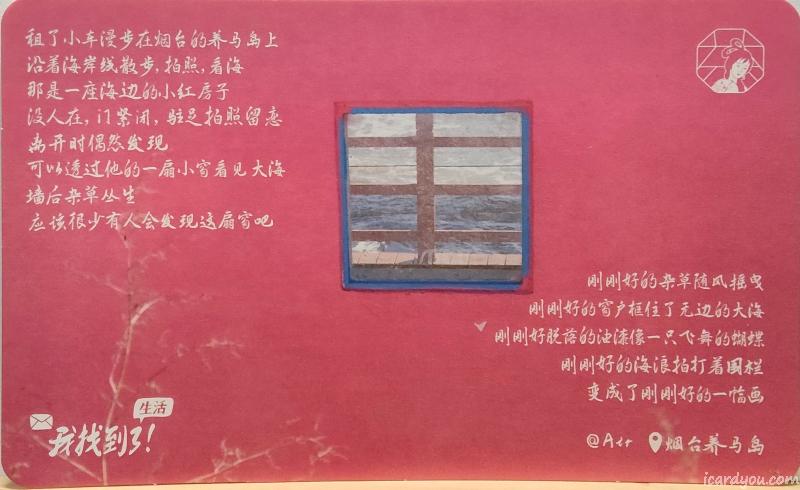 租了小车漫步在烟台的养马岛上
沿着海岸线散步,拍照,看海
那是一座海边的小红房子
没人在,门紧闭,驻足拍照留恋
离开时偶然发现
可以透过他的一扇小窗看见大海
墙后杂草丛生
应该很少有人会发现这扇窗吧
刚刚好的杂草随风摇曳
刚刚好的窗户框住了无边的大海
刚刚好脱落的油漆像一只飞舞的蝴蝶
刚刚好的海浪拍打着围栏
变成了刚刚好的一幅画
生活
我找到了!
烟台养马岛
icardyou.com